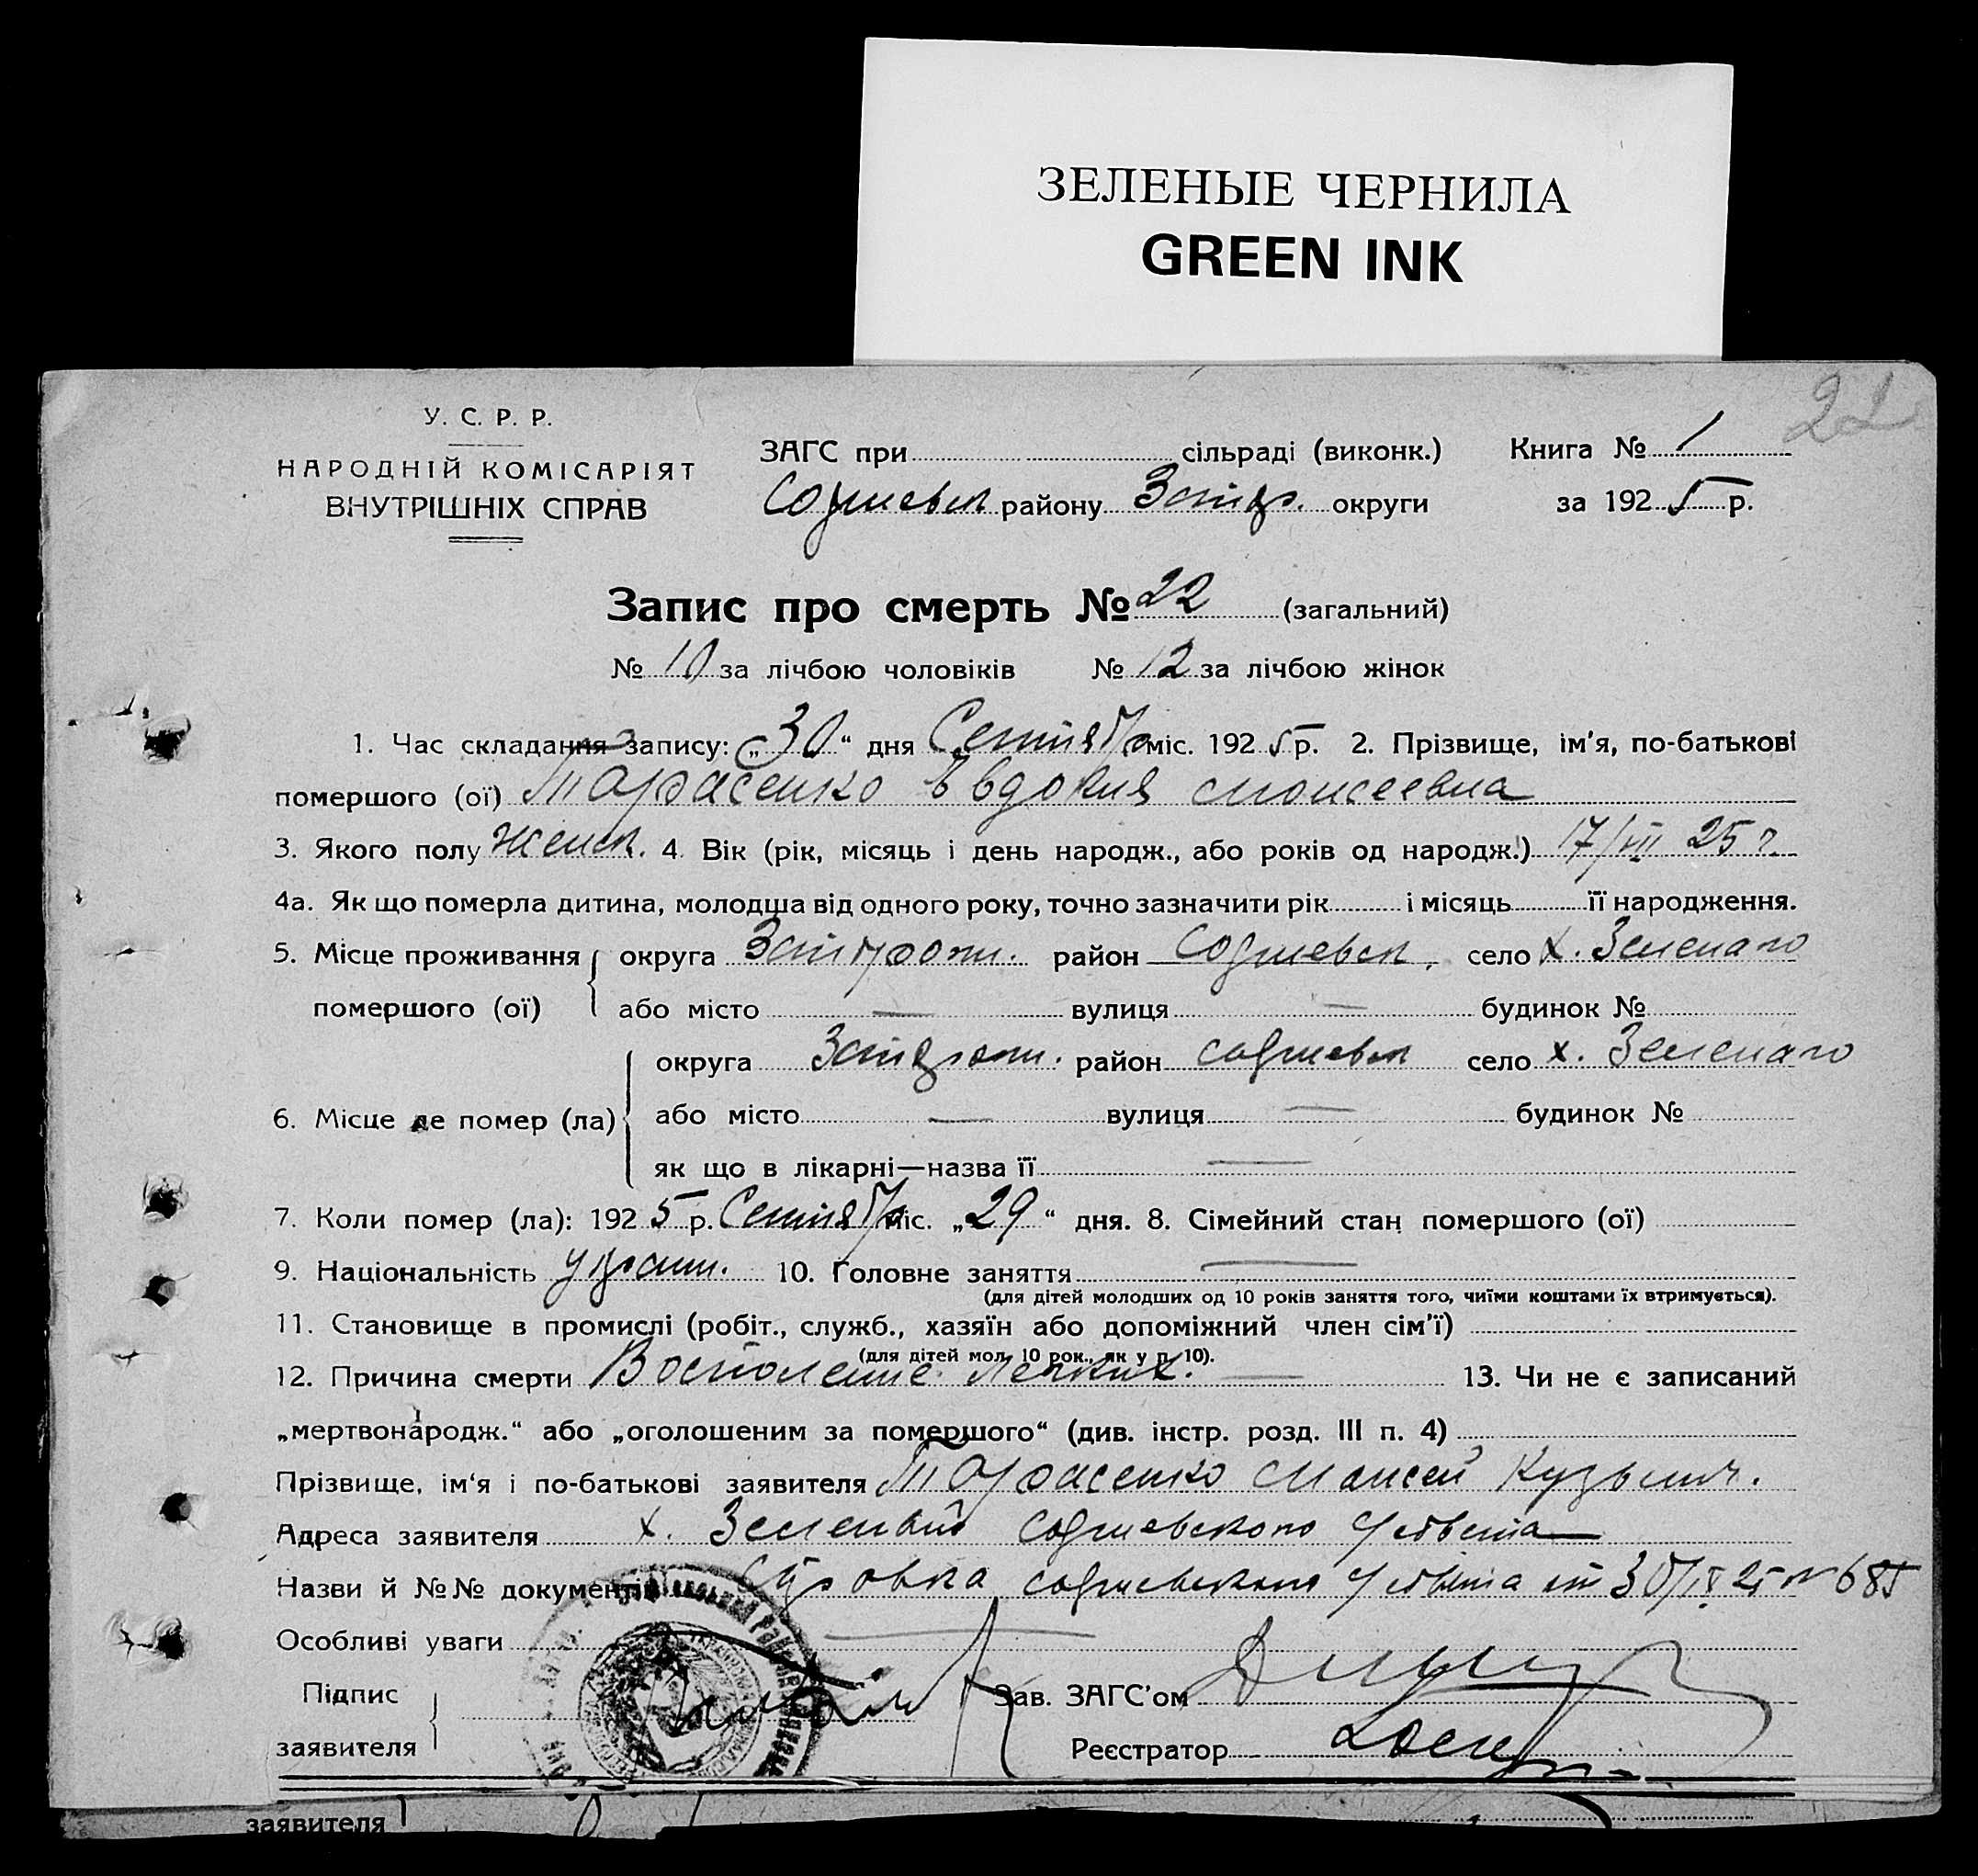 ЗЕЛЕНЫЕ ЧЕРНИЛА
GREEN INK
22
У. С. Р. Р.
НАРОДНІЙ КОМІСАРІЯТ
ВНУТРІШНІХ СПРАВ
ЗАГС при сільраді (виконк.) Книга № 1
Софиевск району Запор. округи за 1925 р.
Запис про смерть № 22 (загальний)
№ 10 за лічбою чоловіків № 12 за лічбою жінок
1. Час складання запису: „30“ дня Сентября міс. 1925 р. 2. Прізвище, ім'я, по-батькові
помершого (ої) Тарасенко Евдокия Моисеевна
3. Якого полу Женск. 4. Вік (рік, місяць і день народж., або років од народж.) 17/VIII 25 г.
4а. Як що померла дитина, молодша від одного року, точно зазначити рік і місяць її народження.
5. Місце проживання округа Запорож. район Софиевск. село х. Зеленаго
помершого (ої) або місто — вулиця — будинок №
округа Запорож. район Софиевск село х. Зеленаго
6. Місце де помер (ла) або місто — вулиця — будинок №
як що в лікарні—назва її —
7. Коли помер (ла): 1925 р. Сентября міс. „29“ дня. 8. Сімейний стан помершого (ої)
9. Національність украин. 10. Головне заняття —
(для дітей молодших од 10 років заняття того, чиїми коштами їх втримується).
11. Становище в промислі (робіт., служб., хазяїн або допоміжний член сім'ї)
(для дітей мол. 10 рок., як у п. 10).
12. Причина смерти Восполение легких. — 13. Чи не є записаний
„мертвонародж.“ або „оголошеним за помершого“ (див. інстр. розд. III п. 4)
Прізвище, ім'я і по-батькові заявителя Тарасенко Моисей Кузьмич.
Адреса заявителя х. Зеленый Софиевского с/совета
Назви й №№ документів Справка Софиевского с/совета от 30/IX 25 № 685
Особливі уваги —
Підпис
заявителя
Зав. ЗАГС'ом
Реєстратор
заявителя